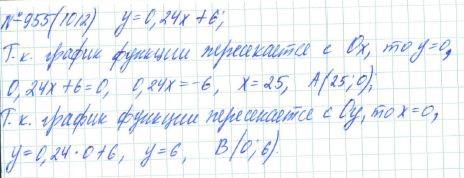 №955(1012) y=0,24x+6;
Т.к. график функции пересекается с Ox, то y=0,
0,24x+6=0, 0,24x=-6, x=25, A(25;0);
Т.к. график функции пересекается с Oy, то x=0,
y=0,24·0+6, y=6, B(0;6).